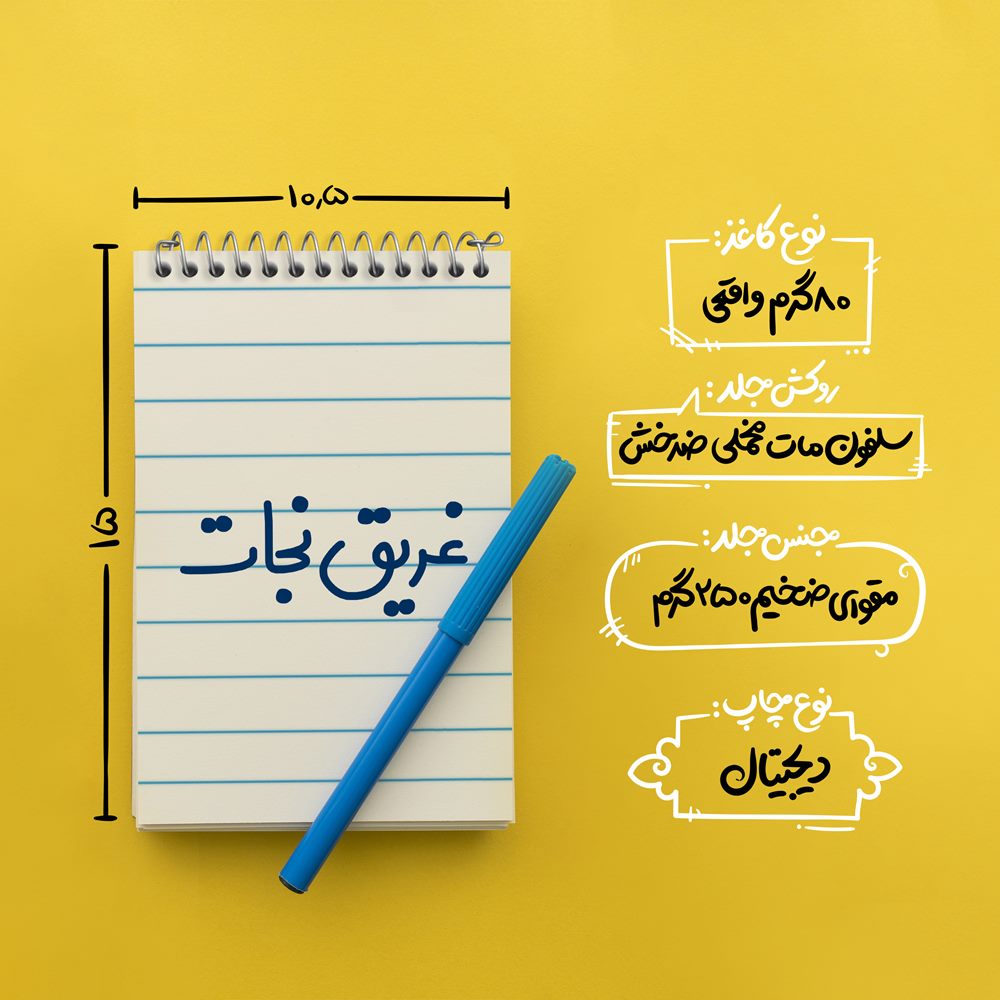 ۱۰٫۵
۱۵
غریق نجات
نوع کاغذ:
۸۰ گرم واقعی
روکش جلد:
سلفون مات مخملی ضدخش
جنس جلد:
مقوای ضخیم ۲۵۰ گرم
نوع چاپ:
دیجیتال